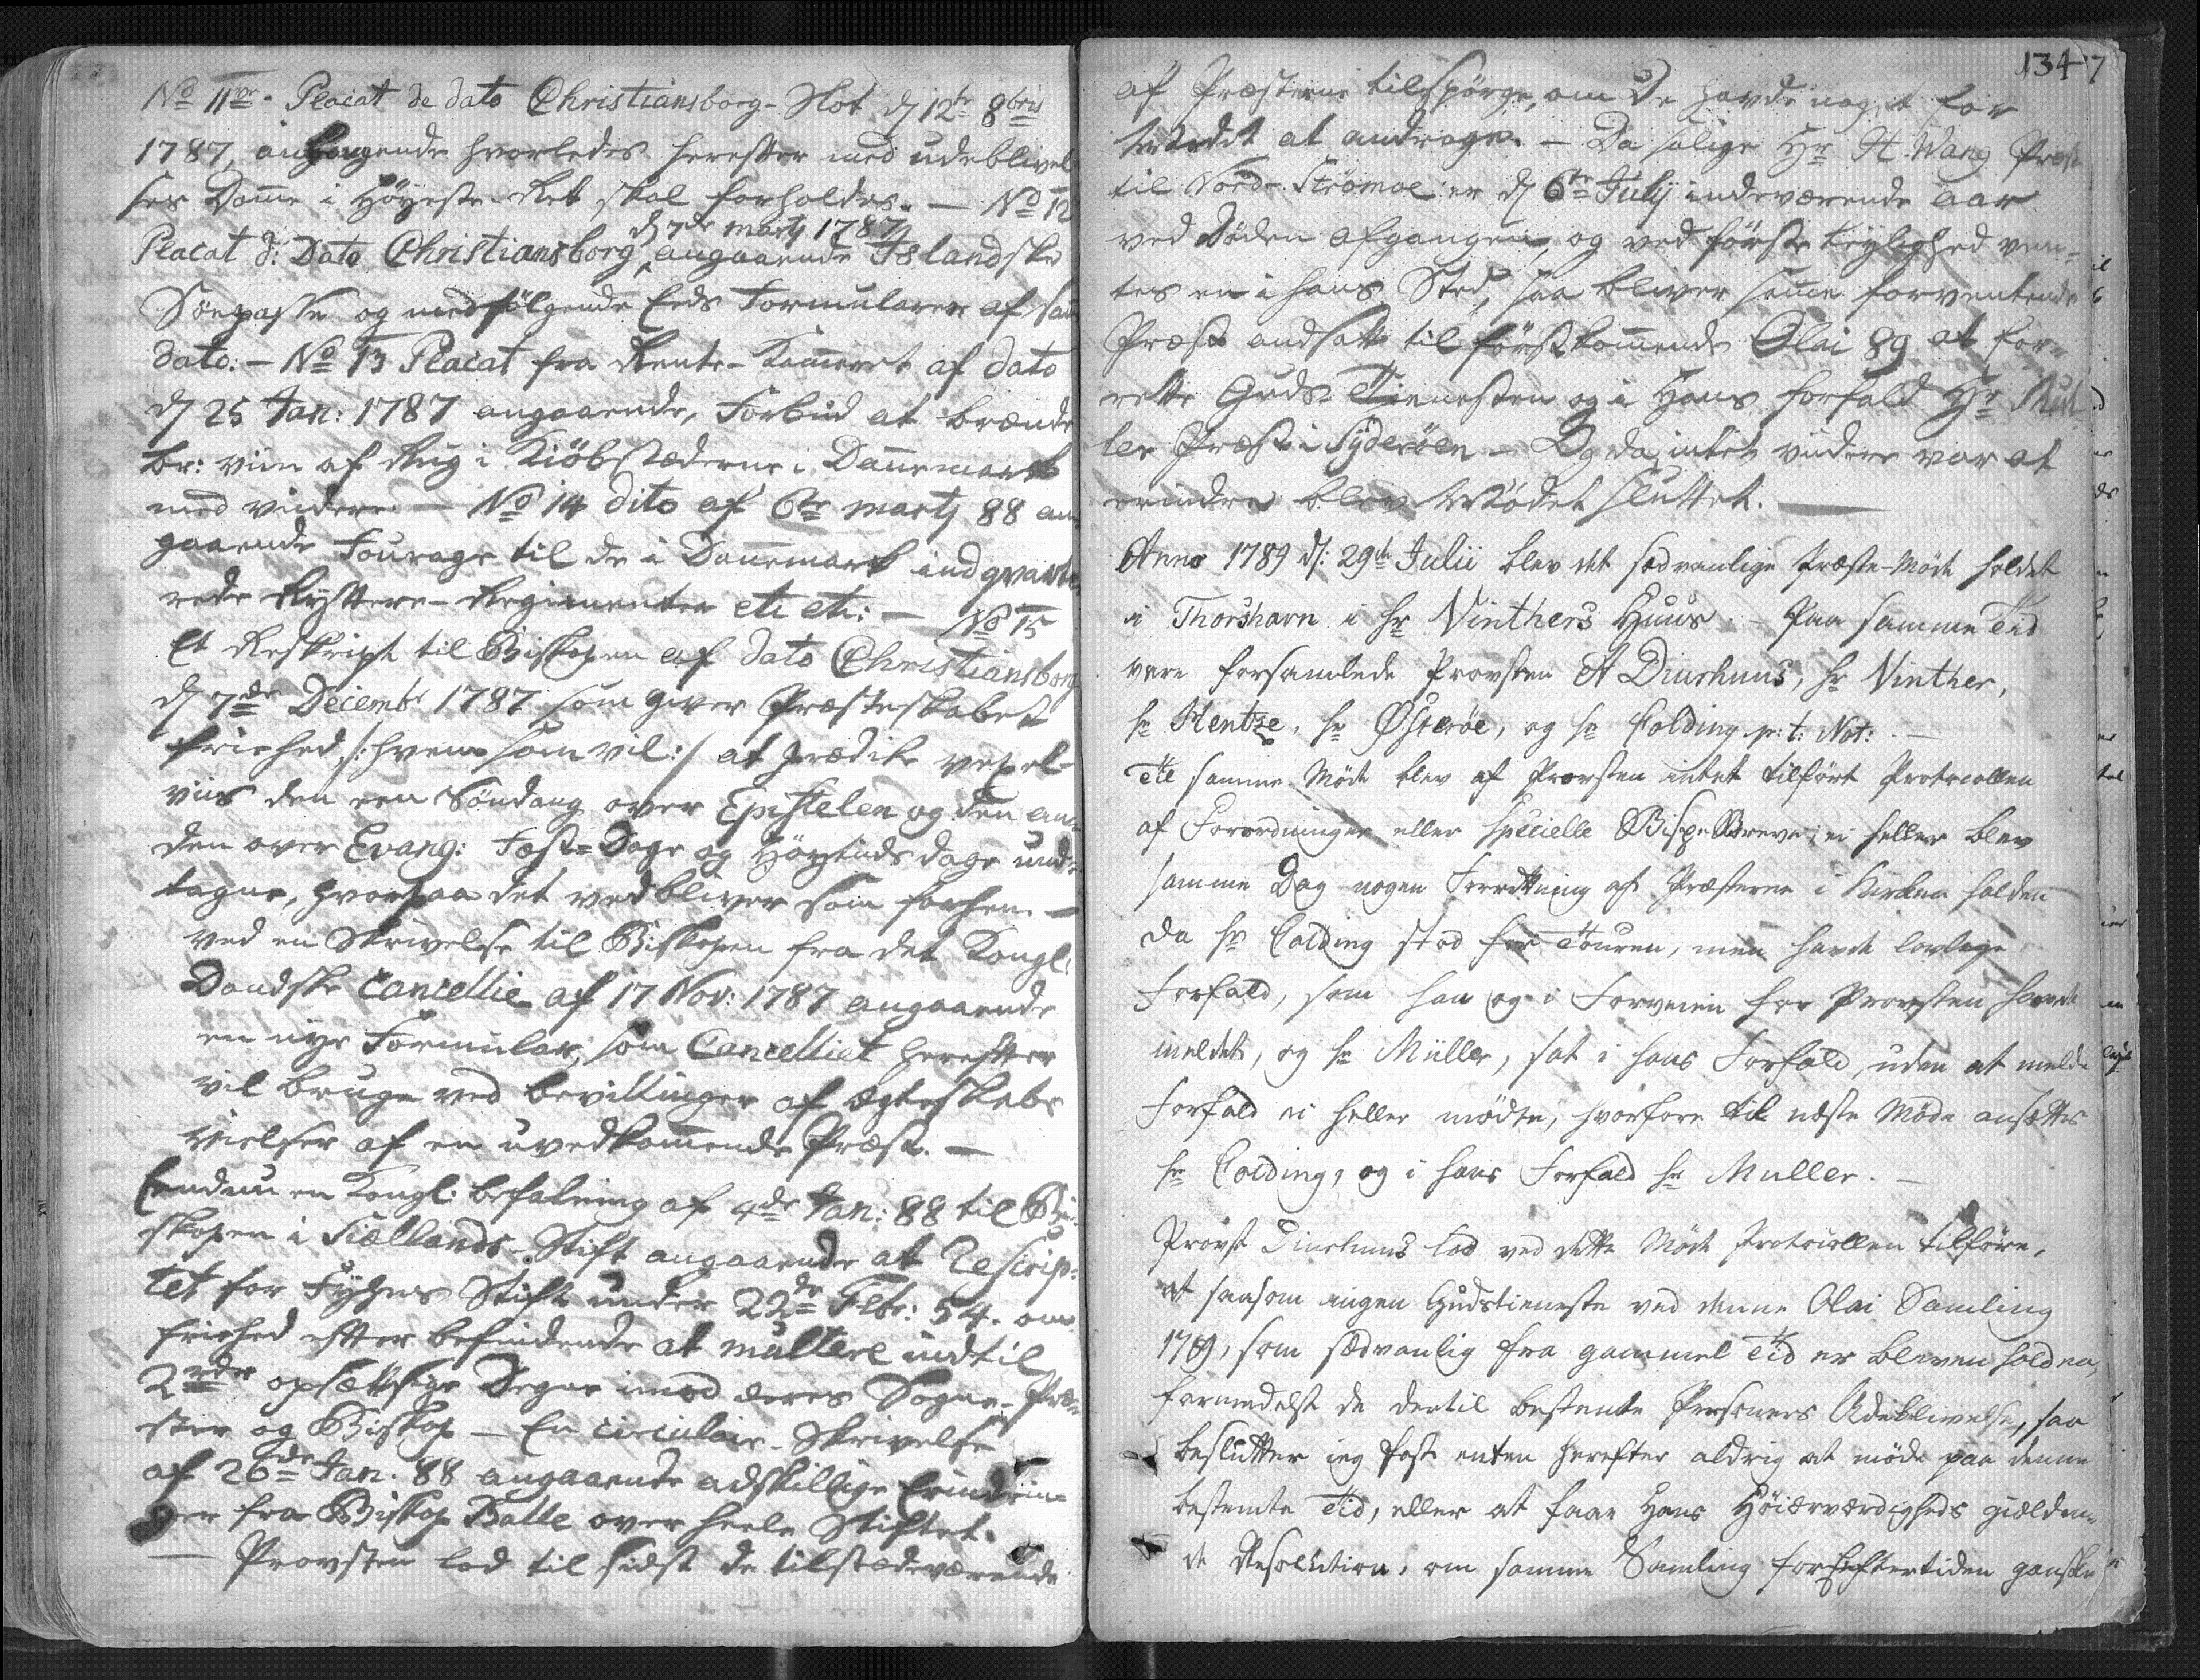 No 11ve. Placat de dato Christiansborg-Slot d 12te 8bris
1787, anhængende hvorledes herefter med udeblivel
ses Domme i Höyeste-Ret skal forholdes. — No 12
d 7de Martj 1787
Placat d: Dato Christiansborg angaaende Islandske
Söepasse og medfölgende Eeds Formularer af sam
dato: — No 13 Placat fra Rente-Kammeret af dato
d 25 Jan: 1787 angaaende, Forbud at brænde
br: viin af Rug i Kiöbstæderne i Dannemark
med viidere. — No 14 dito af 6te martj 88 an
gaaende Fourage til de i Dannemark indqvarte
rede Rÿttere-Regimenter etc etc: — No 15
Et Reskript til Biskopen af dato Christiansborg
d 7de Decembr 1787 som giver Præsteskabet
friehed /: hvem som vil :/ at prædike vexel-
viis den een Söndag over Epistelen og den an
den over Evang: Fæst-Dage og Höytids dage und
tagne, hvorpaa det vedbliver som forhen. —
ved en Skrivelse til Biskopen fra det Kongl:
Dandske Cancellie af 17 Nov: 1787 angaaende
en nye Formular, som Cancelliet herefter
vil bruge ved bevillinger af Ægteskabs
vielser af en uvedkommende Præst. —
Endnu en Kongl: befalning af 4de Jan: 88 til Bi-
skopen i Siællands-Stift angaaende at Rescrip-
tet for Fyhns Stift under 22de Febr: 54. om
friehed efter befindende at multere indtil
2rdr opsættsige Degne imod deres Sogne-Præ-
ster og Biskop — En circulair-Skrivelse
af 26de Jan. 88 angaaende adskillige Erindrin-
ger fra Biskop Balle over heele Stiftet.
— Provsten lod til sidst de tilstædeværende
1347
af Præsterne tilspörge, om de havde noget for
Mödet at andrage. — Da salige Hr H. Wang Præst
til Nord-Strömoe er d 6te Julij indeværende aar
ved Döden afgangen, og ved förste leylighed ven-
tes en i hans Sted, saa bliver samme forventende
Præst andsatt til förstkommende Olai 89 at for-
rette Guds-Tienesten og i Hans forfald Hr Mül-
ler Præst i Syderöen. — Og da intet viidere var at
erindre blev Mödet sluttet. —
Anno 1789 d: 29de Julii blev det sædvanlige Præste-Möde holdet
i Thorshavn i hr Vinthers Huus. — Paa samme Tid
vare forsamlede Provsten A Diurhuus, hr Vinther,
hr Hentze, hr Østeröe, og hr Colding p: t: Not: —
Til samme Möde blev af Provsten intet tilfört Protocollen
af Forordninger eller specielle Bispe Breve; ei heller blev
samme Dag nogen Forrettning af Præsterne i Kirken holden
da hr Colding stod for Touren, men havde lovlige
Forfald, som han og i Forveien for Provsten havde
meldet, og hr Müller, sat i hans Forfald, uden at melde
Forfald ei heller mödte, hvorfore til næste Möde ansættes
hr Colding, og i hans Forfald hr Muller. —
Provst Diurhuus lod ved dette Möde Protocollen tilföre,
at saasom ingen Gudstieneste ved denne Olai Samling
1789, som sædvanlig fra gammel Tid er bleven holden,
formedelst de dertil bestemte Personers Udeblivelse, saa
beslutter ieg fast enten herefter aldrig at möde paa denne
bestemte Tid, eller at faae Hans Höiærværdigheds gielden-
de Resolution, om samme Samling for Eftertiden ganske